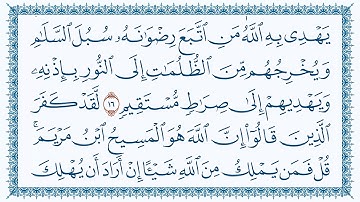 يَهْدِي بِهِ ٱللَّهُ مَنِ ٱتَّبَعَ رِضْوَٰنَهُۥ سُبُلَ ٱلسَّلَٰمِ
وَيُخْرِجُهُم مِّنَ ٱلظُّلُمَٰتِ إِلَى ٱلنُّورِ بِإِذْنِهِۦ
وَيَهْدِيهِمْ إِلَىٰ صِرَٰطٍ مُّسْتَقِيمٍ ١٦ لَّقَدْ كَفَرَ
ٱلَّذِينَ قَالُوٓا۟ إِنَّ ٱللَّهَ هُوَ ٱلْمَسِيحُ ٱبْنُ مَرْيَمَ ۚ
قُلْ فَمَن يَمْلِكُ مِنَ ٱللَّهِ شَيْـًٔا إِنْ أَرَادَ أَن يُهْلِكَ